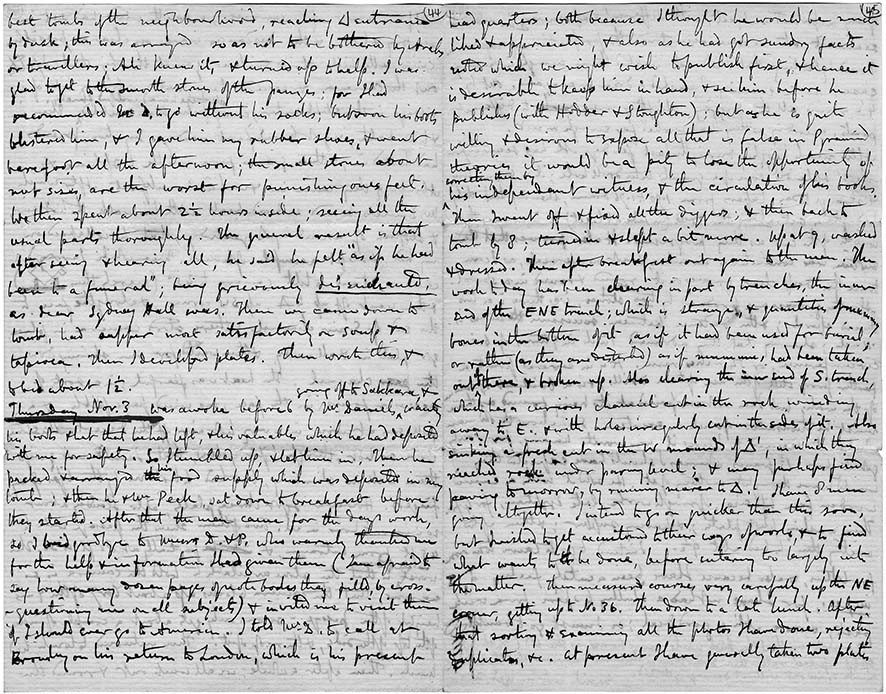 44
best tombs of the neighbourhood, reaching Δ entrance
by dusk; this was arranged so as not to be bothered by Arabs
or travellers; Ali knew it, & turned up to help. I was
glad to get to the smooth stones of the passages, for I had
recommended D. to go without his socks; but soon his boots
blistered him, & I gave him my rubber shoes, & went
barefoot all the afternoon; the small stones about
nut size, are the worst for punishing ones feet.
We then spent about 2½ hours inside; seeing all the
usual parts thoroughly. The general result is that
after seeing & hearing all, he said he felt "as if he had
been to a funeral"; being grievously disenchanted,
as dear Sydney Hall was. Then we came down to
tomb, had supper most satisfactorily on soup &
tapioca. Then I developed plates. Then wrote this, &
to bed about 1½.
Thursday Nov. 3 was awoke before 6 by Mr Daniels, going off to Sakkara & wanting
his boots & hat that he had left, & his valuables which he had deposited
with me for safety. So I tumbled up, & let him in. Then he
packed & arranged his food supply which was deposited in my
tomb; & then he & Mr Peck, sat down to breakfast before
they started. After that the men came for the days work,
so I bid goodbye to Messrs D. & P. who warmly thanked me
for the help & information I had given them (I am afraid to
say how many dozen pages of note books they filled, by cross-
-questioning me on all subjects) & invited me to visit them
if I should ever go to America. I told Mr D. to call at
Bromley on his return to London, which is his present
45
headquarters; both because I thought he would be much
liked & appreciated, & also as he had got sundry facts
noted which we might wish to publish first, & hence it
is desirable to keep him in hand, & see him before he
publishes (with Hodder & Stoughton); but as he is quite
willing & desirous to expose all that is false in Pyramid
theories, it would be a pity to lose the opportunity of
his independent witness, & the circulation of his books.
Then I went off & fixed all the diggers, & then back to
tomb by 8; turned in & slept a bit more. Up at 9, washed
& dressed. Then after breakfast out again to the men. The
work today has been clearing in part by trenches, the inner
end of the ENE trench; which is strange, & quantities of mummy
bones in the bottom of it as if it had been used for burial,
or rather (as they are detached) as if mummies, had been taken
out there, & broken up. Also clearing the inner end of S. trench,
which has a curious channel cut in the rock winding
away to E. & with holes irregularly cut in the sides of it. Also
making a fresh cut in the W mounds of Δ, in which they
reached rock under paving level; & may perhaps find
paving tomorrow, by running nearer to Δ. I have 8 men
going altogether. I intend to go on quicker than this soon,
but I wished to get accustomed to their ways of work, & to find
what wants to be done, before entering too largely into
the matter. Then measured courses very carefully up the NE
corner, getting up to No. 36. Then down to a late lunch. After
that sorting & examining all the photos I have done, rejecting
duplicates, &c. At present I have generally taken two plates